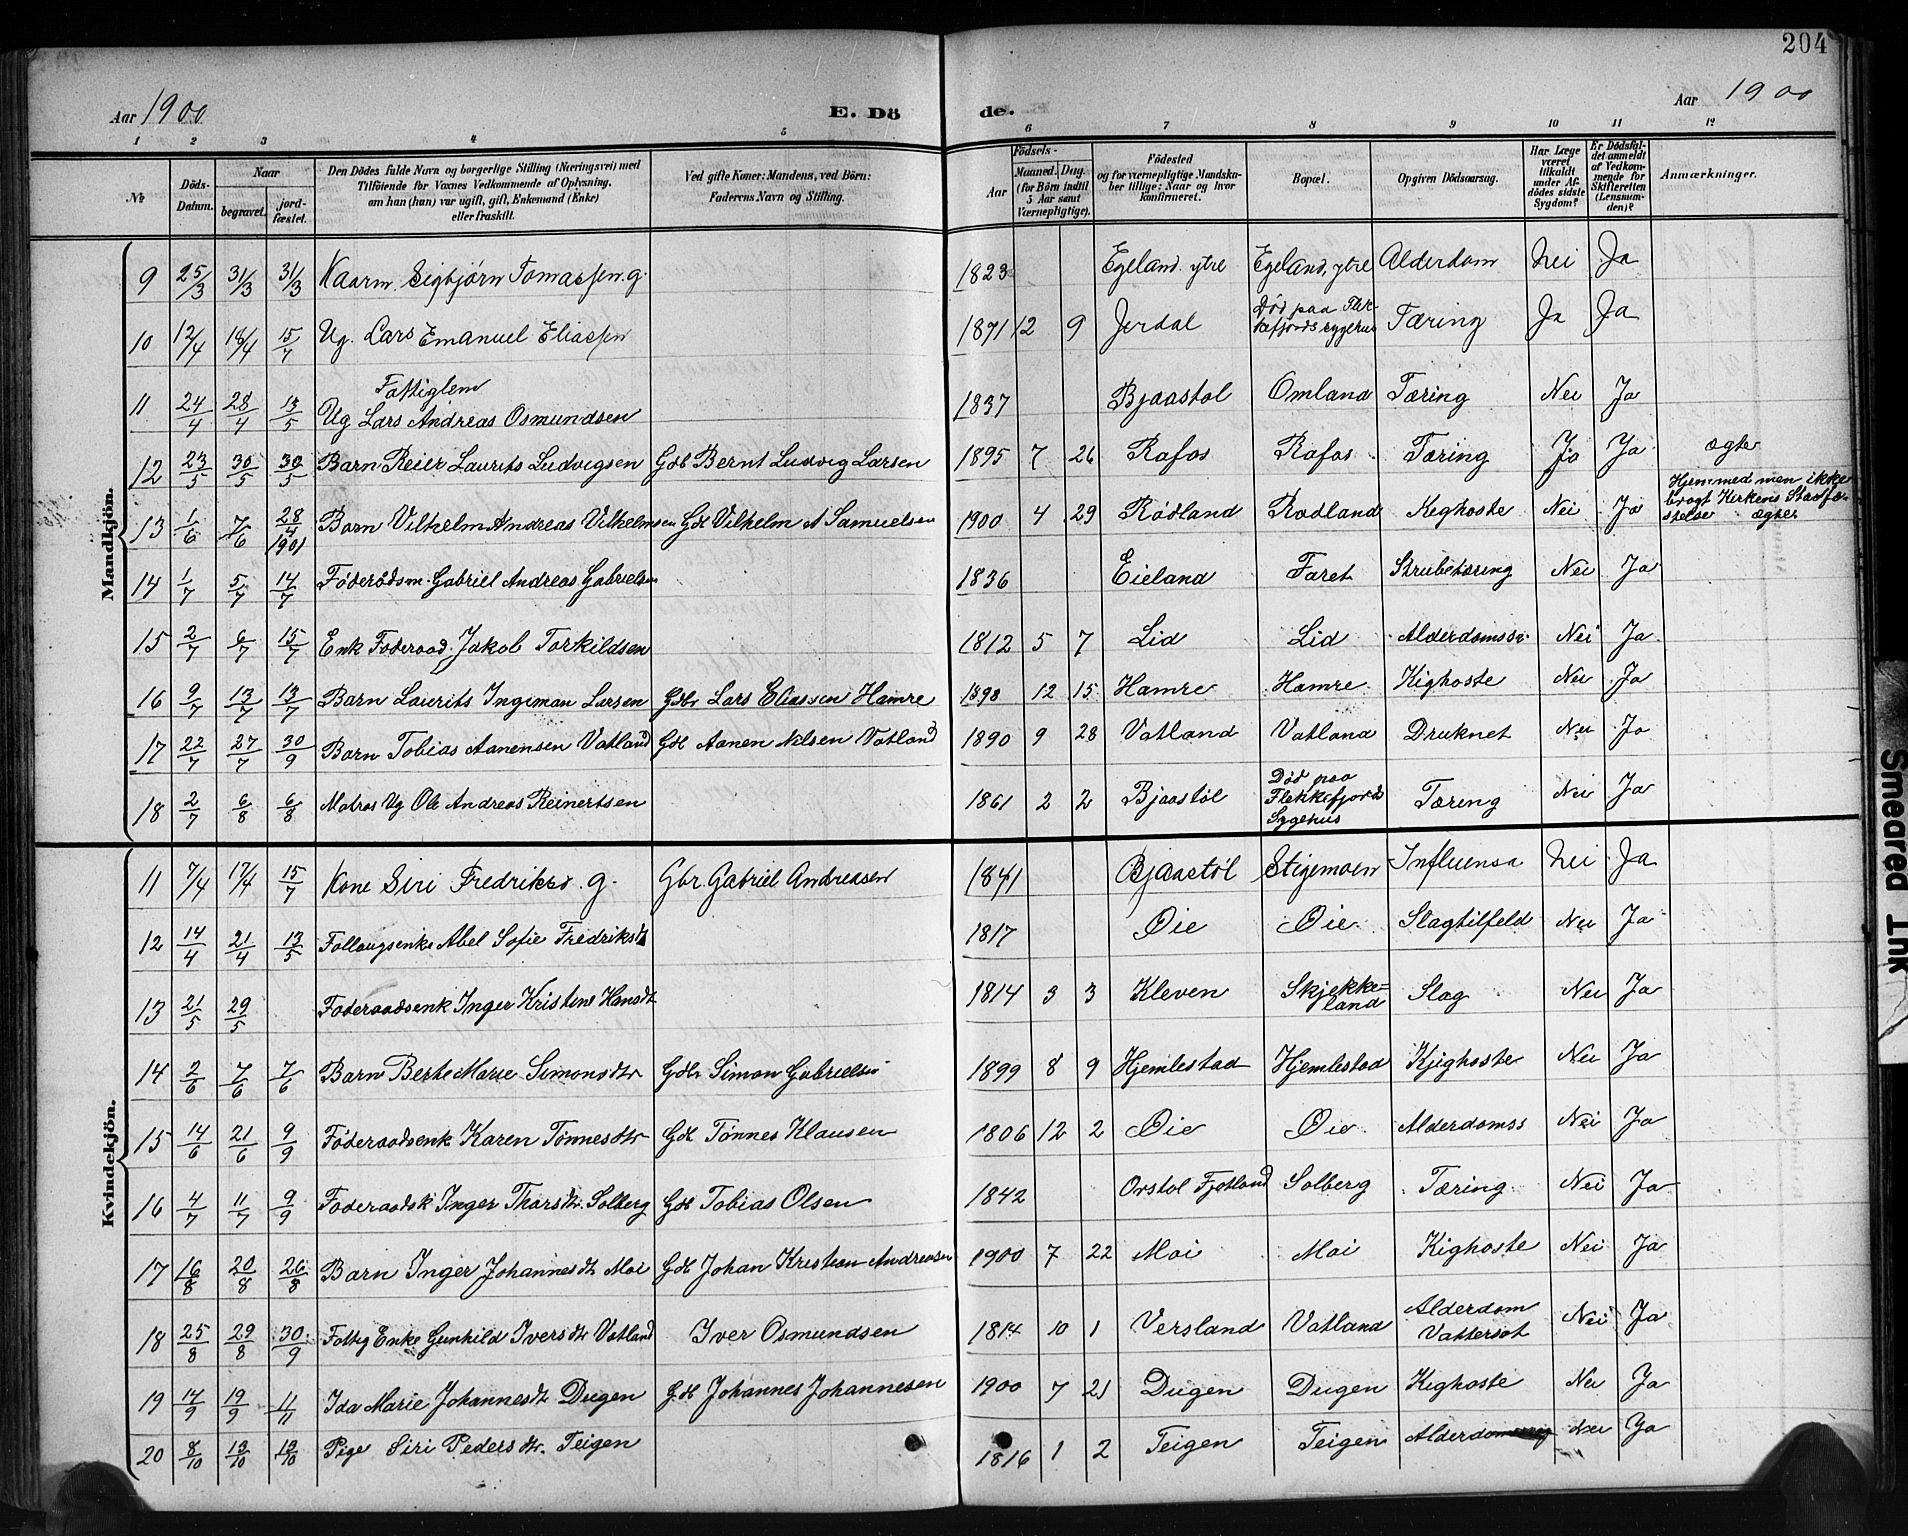 204
Aar 1900 E. Dö de. Aar 1900
1 2 3 4 5 6 7 8 9 10 11 12
№ Döds-Datum. Naar begravet. jord-fæstet. Den Dödes fulde Navn og borgerlige Stilling (Næringsvei) med Tilföiende for Voxnes Vedkommende af Oplysning, om han (hun) var ugift, gift, Enkemand (Enke) eller fraskilt. Ved gifte Koner: Mandens, ved Börn: Faderens Navn og Stilling. Födsels- Aar Maaned. Dag. (for Börn indtil 5 Aar samt Værnepligtige). Födested og for værnepligtige Mandskaber tillige: Naar og hvor konfirmeret. Bopæl. Opgiven Dödsaarsag. Har Læge været tilkaldt under Afdödes sidste Sygdom? Er Dödsfaldet anmeldt af Vedkommende for Skifteretten (Lensmanden)? Anmærkninger.
Mandkjön.
9 25/3 31/3 31/3 Kaarm. Sigbjörn Tomassen g. 1823 Egeland ytre Egeland, ytre Alderdom Nei Ja
10 12/4 18/4 15/7 Ug. Lars Emanuel Eliassen 1871 12 9 Jerdal Död paa Flekkefjords sygehus Tæring Ja Ja
11 24/4 28/4 13/5 Fattiglem Ug Lars Andreas Osmundsen 1837 Bjaastøl Omland Tæring Nei Ja
12 23/5 30/5 30/5 Barn Reier Laurits Ludvigsen Gdb Bernt Ludvig Larsen 1895 7 26 Rafos Rafos Tæring Ja Ja ægte
13 1/6 7/6 28/4 1901 Barn Vilhelm Andreas Vilhelmsen Gdb Vilhelm A Samuelsen 1900 4 29 Rødland Rødland Kighoste Nei Ja Hjemmed men ikke bragt Kirkens Stadfæstelse ægte
14 1/7 5/7 14/7 Føderådsm. Gabriel Andreas Gabrielsen 1836 Eieland Faret Strubetæring Nei Ja
15 2/7 6/7 15/7 Enk Føderaad Jakob Torkildsen 1812 5 7 Lid Lid Alderdomss. Nei Ja
16 9/7 13/7 13/7 Barn Laurits Ingeman Larsen Gdbr Lars Eliassen Hamre 1898 12 15 Hamre Hamre Kighoste Nei Ja
17 22/7 27/7 30/9 Barn Tobias Aanensen Vatland Gdb Aanen Nilsen Vatland 1890 9 28 Vatland Vatland Druknet Nei Ja
18 2/7 6/8 6/8 Matros Ug Ole Andreas Reinertsen 1861 2 2 Bjaastøl Død paa Flekkefjords Sygehus Tæring Nei Ja
Kvindekjön.
11 7/4 17/4 15/7 Kone Siri Fredriksd. g. Gbr. Gabriel Andreasen 1841 Bjaastøl Stigemoen Influensa Nei Ja
12 14/4 21/4 13/5 Follaugsenke Abel Sofie Fredriksdt 1817 Øie Øie Slagtilfeld Nei Ja
13 21/5 29/5 Føderaadsenk Inger Kristine Hansdt 1814 3 3 Kleven Skjekkeland Slag Nei Ja
14 2/6 7/6 7/6 Barn Berte Marie Simonsdtr Gdbr Simon Gabrielsen 1899 8 9 Hjemlestad Hjemlestad Kjighoste Nei Ja
15 14/6 21/6 9/9 Føderaadsenk Karen Tønnesdtr Gdb Tønnes Klausen 1806 12 2 Øie Øie Alderdomss Nei Ja
16 4/7 11/7 9/9 Føderaadsk Inger Thorsdtr. Solberg Gdb Tobias Olsen 1842 Orstøl Fjotland Solberg Tæring Nei Ja
17 16/8 20/8 26/8 Barn Inger Johannesdt Moi Gdb Johan Kristian Andreasen 1900 7 22 Moi Moi Kighoste Nei Ja
18 25/8 29/8 30/9 Fattig Enke Gunhild Iversdtr Vatland Iver Osmundsen 1814 10 1 Versland Vatland Alderdom Vattersot Nei Ja
19 14/9 19/9 11/11 Ida Marie Johannesdt Dugen Gdb Johannes Johannesen 1900 7 21 Dugen Dugen Kighoste Nei Ja
20 8/10 13/10 13/10 Pige Siri Pedersdtr. Teigen 1816 1 2 Teigen Teigen Alderdom Nei Ja
Smeared Ink